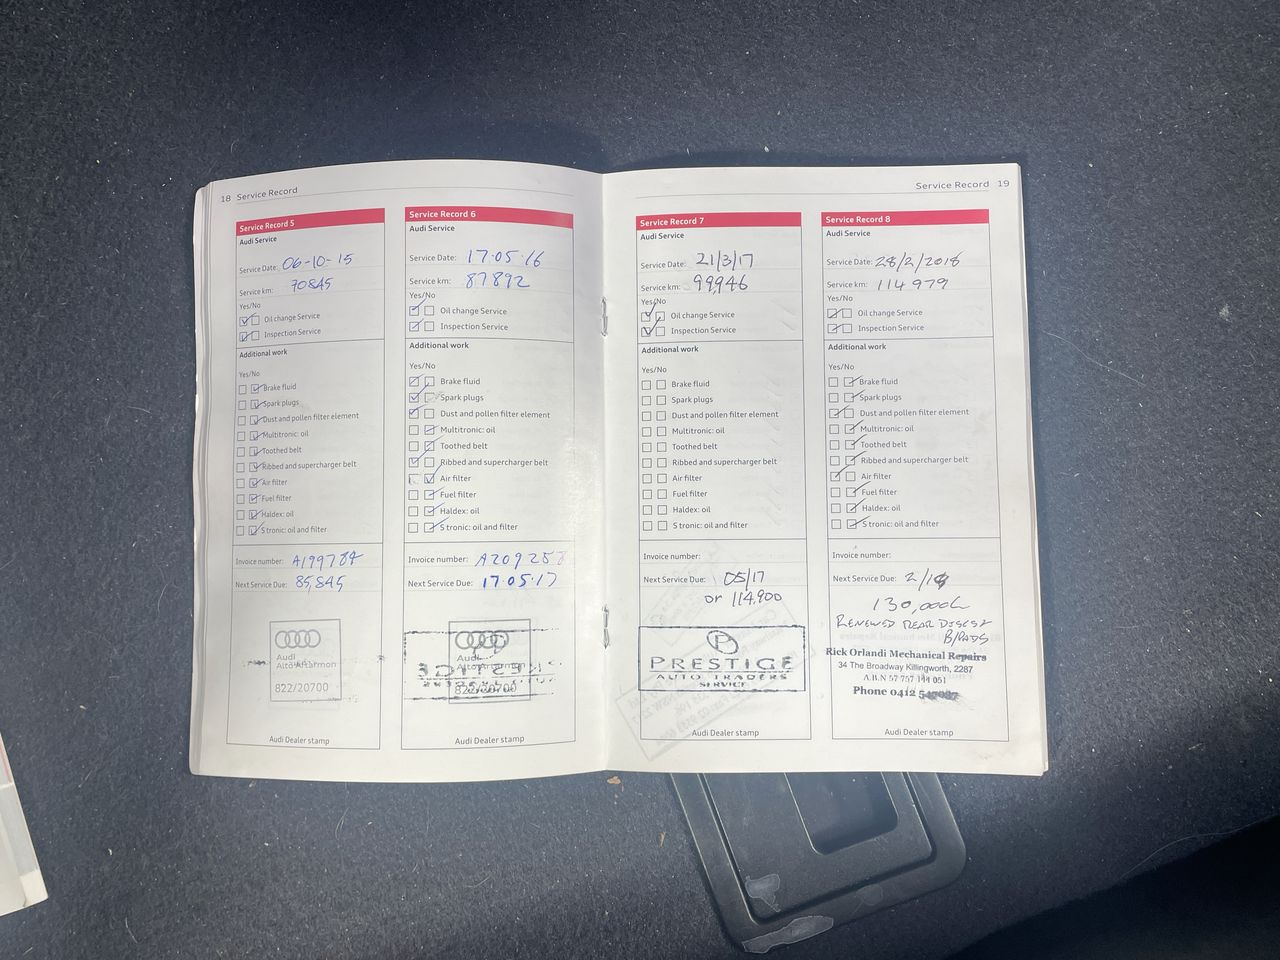 18 Service Record
Service Record 5
Audi Service
Service Date: 06-10-15
Service km: 70845
Yes/No
Oil change Service
Inspection Service
Additional work
Yes/No
Brake fluid
Spark plugs
Dust and pollen filter element
Multitronic: oil
Toothed belt
Ribbed and supercharger belt
Air filter
Fuel filter
Haldex: oil
S tronic: oil and filter
Invoice number: A199784
Next Service Due: 85,845
Audi
Alto Artarmon
822/20700
Audi Dealer stamp
Service Record 6
Audi Service
Service Date: 17.05.16
Service km: 87892
Yes/No
Oil change Service
Inspection Service
Additional work
Yes/No
Brake fluid
Spark plugs
Dust and pollen filter element
Multitronic: oil
Toothed belt
Ribbed and supercharger belt
Air filter
Fuel filter
Haldex: oil
S tronic: oil and filter
Invoice number: A209257
Next Service Due: 17.05.17
Audi
822/20700
Audi Dealer stamp
Service Record 19
Service Record 7
Audi Service
Service Date: 21/3/17
Service km: 99,946
Yes/No
Oil change Service
Inspection Service
Additional work
Yes/No
Brake fluid
Spark plugs
Dust and pollen filter element
Multitronic: oil
Toothed belt
Ribbed and supercharger belt
Air filter
Fuel filter
Haldex: oil
S tronic: oil and filter
Invoice number:
Next Service Due: 05/17
or 114,900
P
PRESTIGE
AUTO TRADERS
SERVICE
Audi Dealer stamp
Service Record 8
Audi Service
Service Date: 28/2/2018
Service km: 114 979
Yes/No
Oil change Service
Inspection Service
Additional work
Yes/No
Brake fluid
Spark plugs
Dust and pollen filter element
Multitronic: oil
Toothed belt
Ribbed and supercharger belt
Air filter
Fuel filter
Haldex: oil
S tronic: oil and filter
Invoice number:
Next Service Due: 2/19
130,000
RENEWED REAR DISCS &
B/PADS
Rick Orlandi Mechanical Repairs
34 The Broadway Killingworth, 2287
A.B.N 57 757 144 051
Phone 0412
Audi Dealer stamp